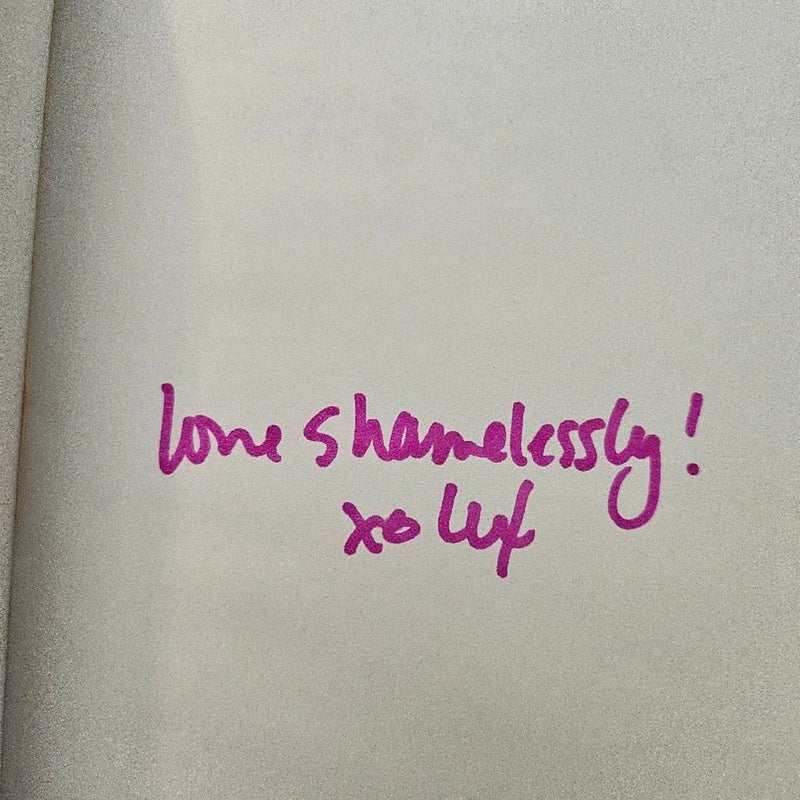 love shamelessly!
xo Lux